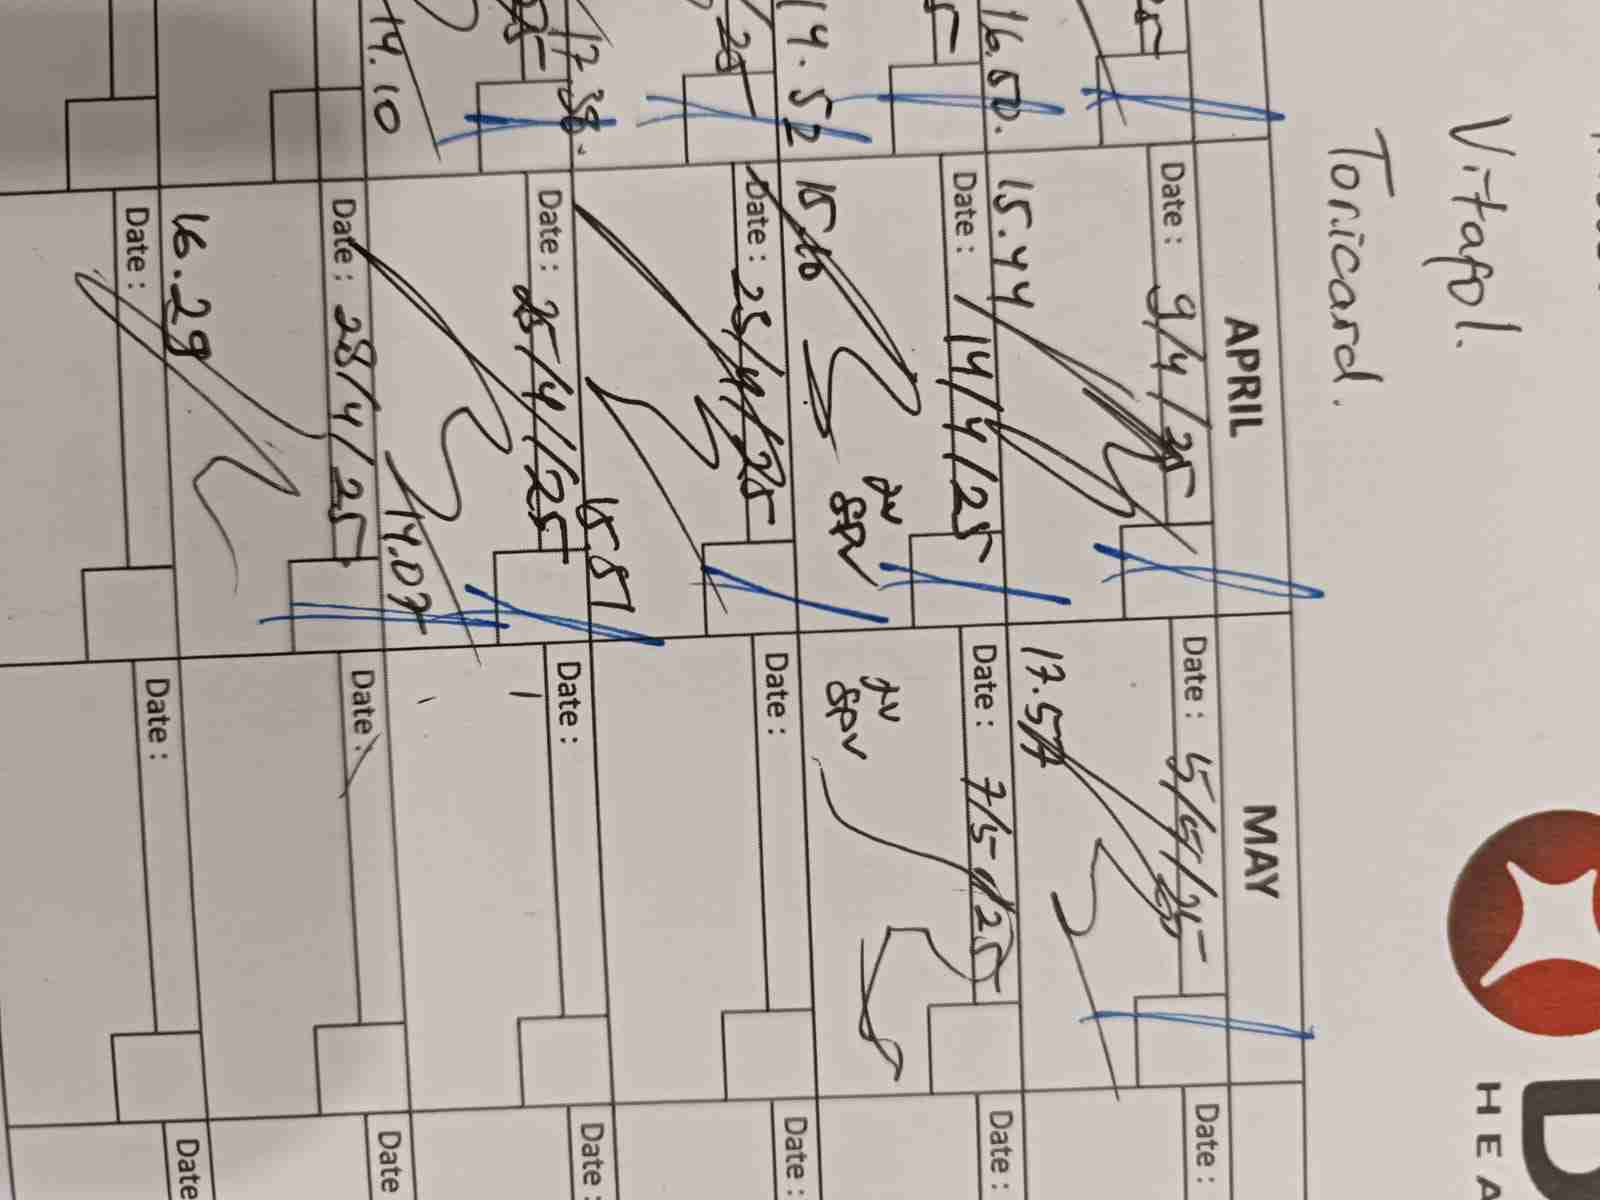 Vitafol.
Toricard.
APRIL
MAY
Date : 9/4/25
Date : 5/5/25
Date :
16.50.
15.44
17.57
Date : 14/4/25
Date : 7/5/25
Date :
14.52
15.10
JV
SPV
JV
SPV
Date : 25/4/25
Date :
Date :
17.38.
15.51
Date : 25/4/25
Date :
Date :
14.10
14.07
Date : 28/4/25
Date :
Date
16.29
Date :
Date :
Date
HEA